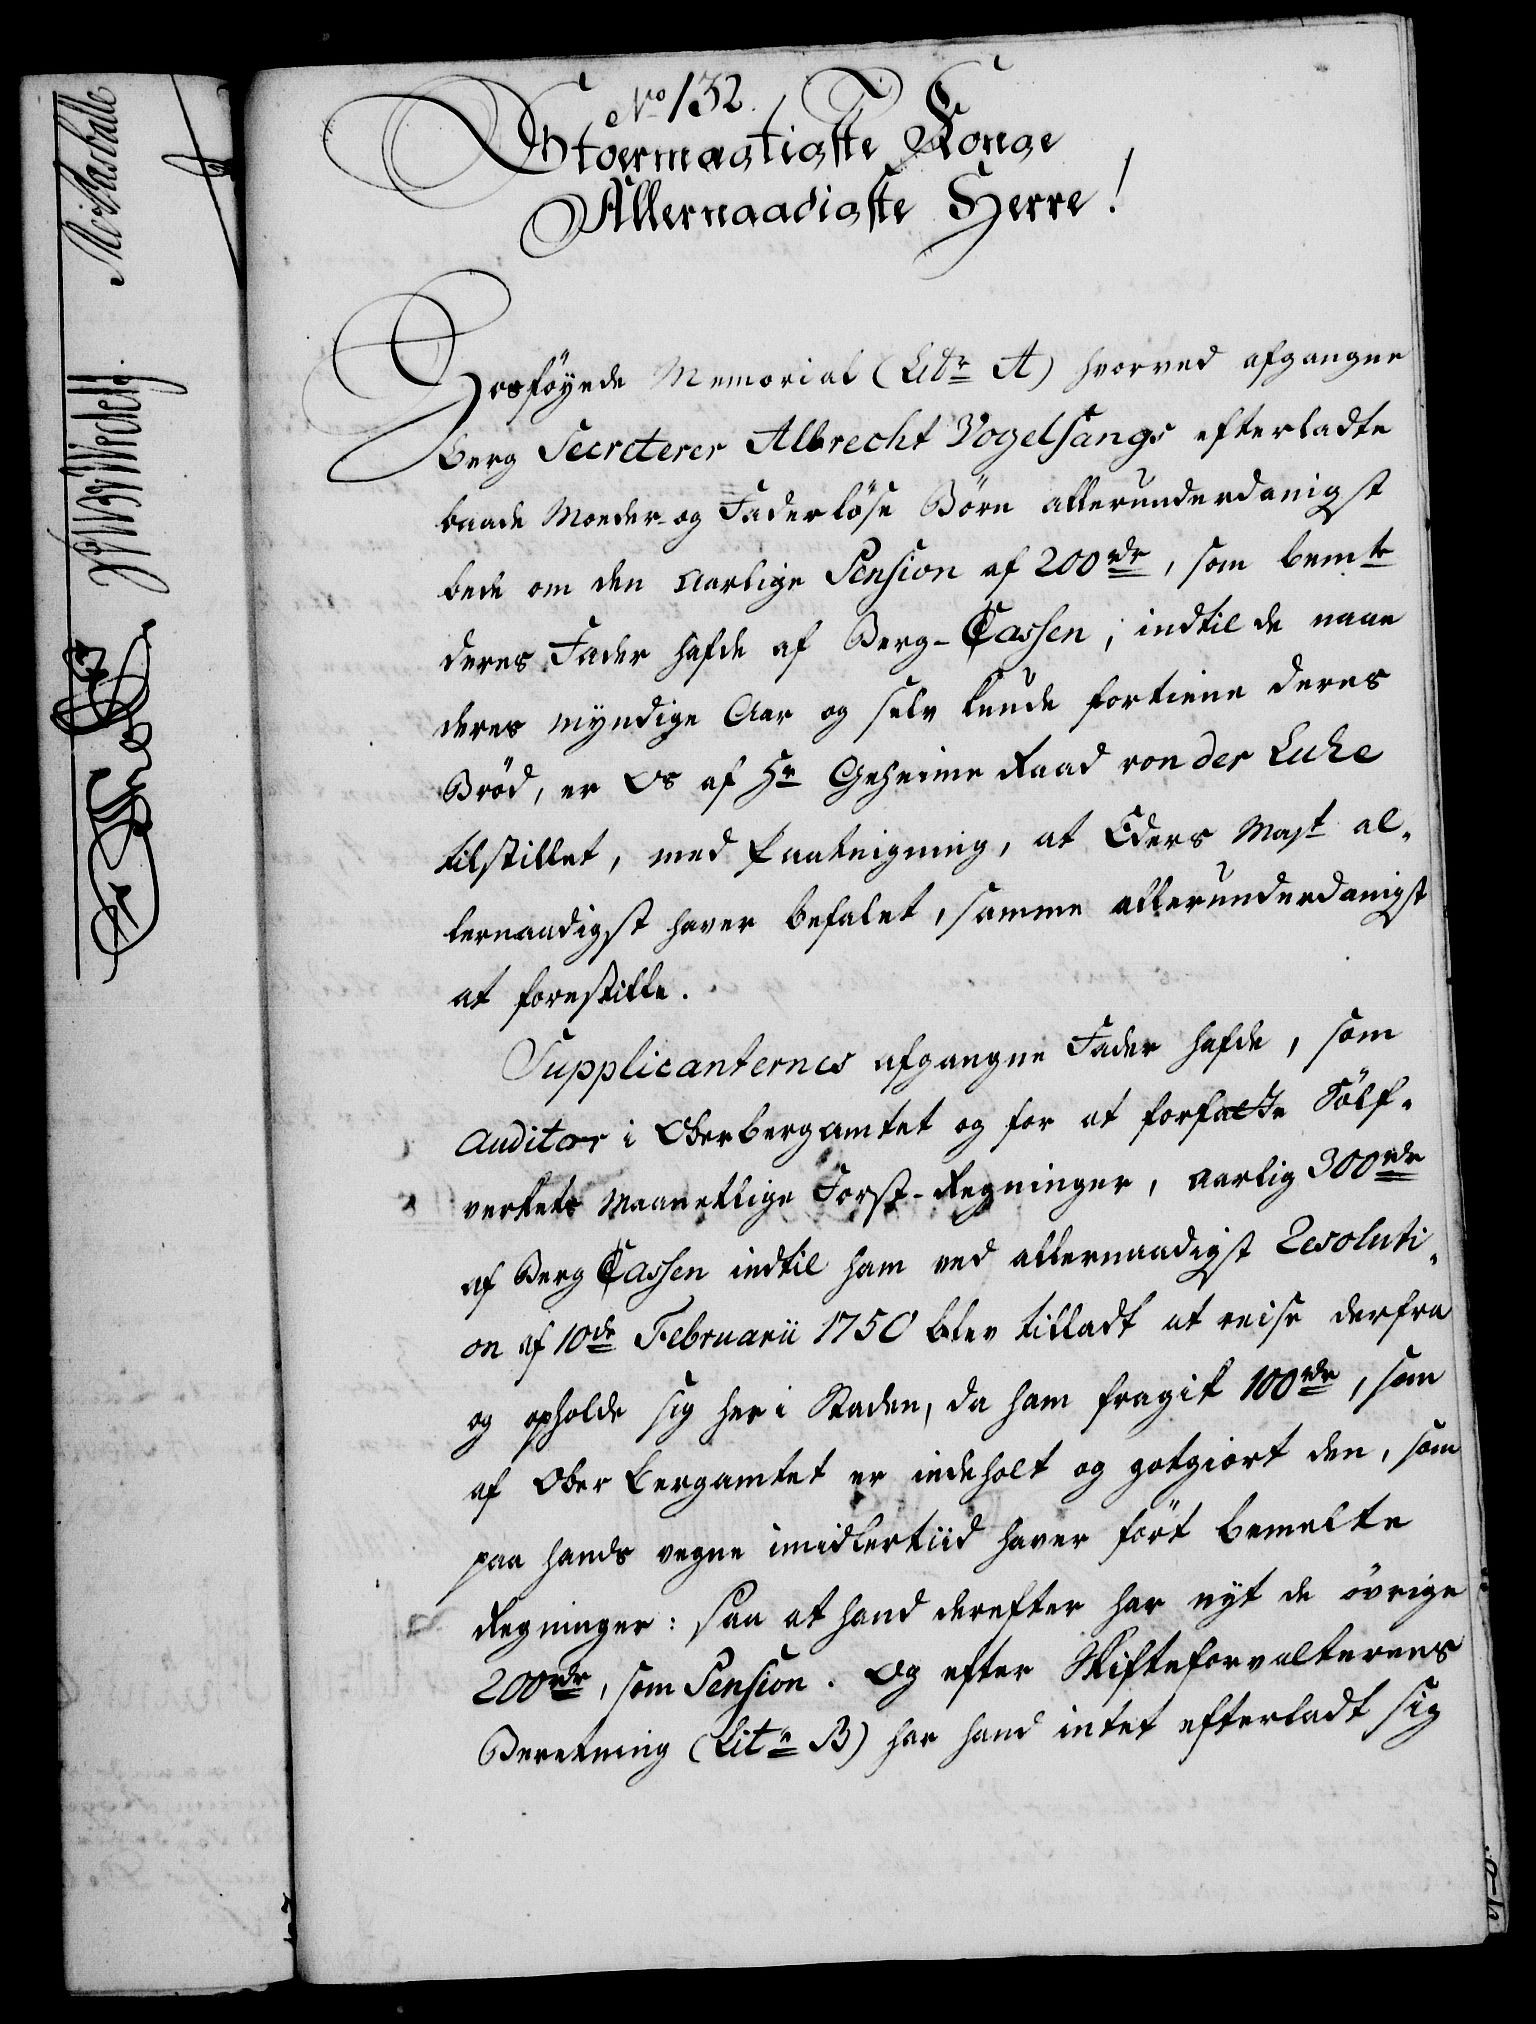 No 132.
Stoermægtigste Konge
Allernaadigste Herre!
Hosföyede Memorial (Litr A) hvorved afgangne
Berg Secreterer Albrecht Vogelsangs efterladte
baade Moeder- og Faderlöse Börn allerunderdanigst
bede om den Aarlige Pension af 200 rdr, som bemte
deres Fader hafde af Berg-Cassen, indtil de naae
deres myndige Aar og selv kunde fortiene deres
Bröd, er Os af Hr Geheime Raad von der Luhe
tilstillet, med Paateigning, at Eders Mayt al-
lernaadigst haver befalet, samme allerunderdanigst
at forestille.
Supplicanternes afgangne Fader hafde, som
Auditor i Oberbergamtet og for at forfatte Sölf-
verkets Maanetlige Forst-Regninger, Aarlig 300 rdr
af Berg Cassen indtil ham ved allernaadigst Resoluti-
on af 10de Februarii 1750 blev tilladt at reise derfra
og opholde sig her i Staden, da ham fragik 100 rdr, som
af Ober Bergamtet er indeholt og gotgiort den, som
paa hands vegne imidlertiid haver fört bemelte
Regninger: saa at hand derefter har nyt de övrige
200 rdr, som Pension. Og efter Skifteforvalterens
Beretning (Litr B) har hand intet efterladt sig